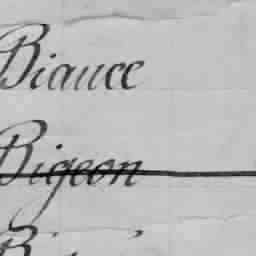 Biauce
Bigeon